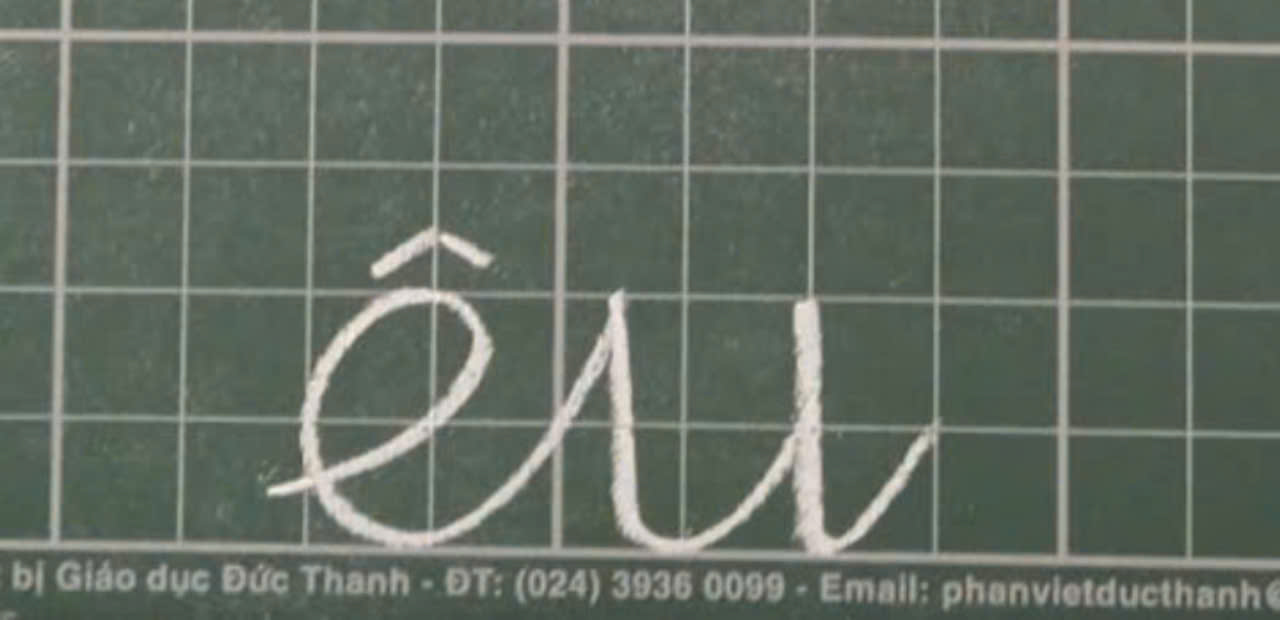 êu
bị Giáo dục Đức Thanh - ĐT: (024) 3936 0099 - Email: phanvietducthanh@